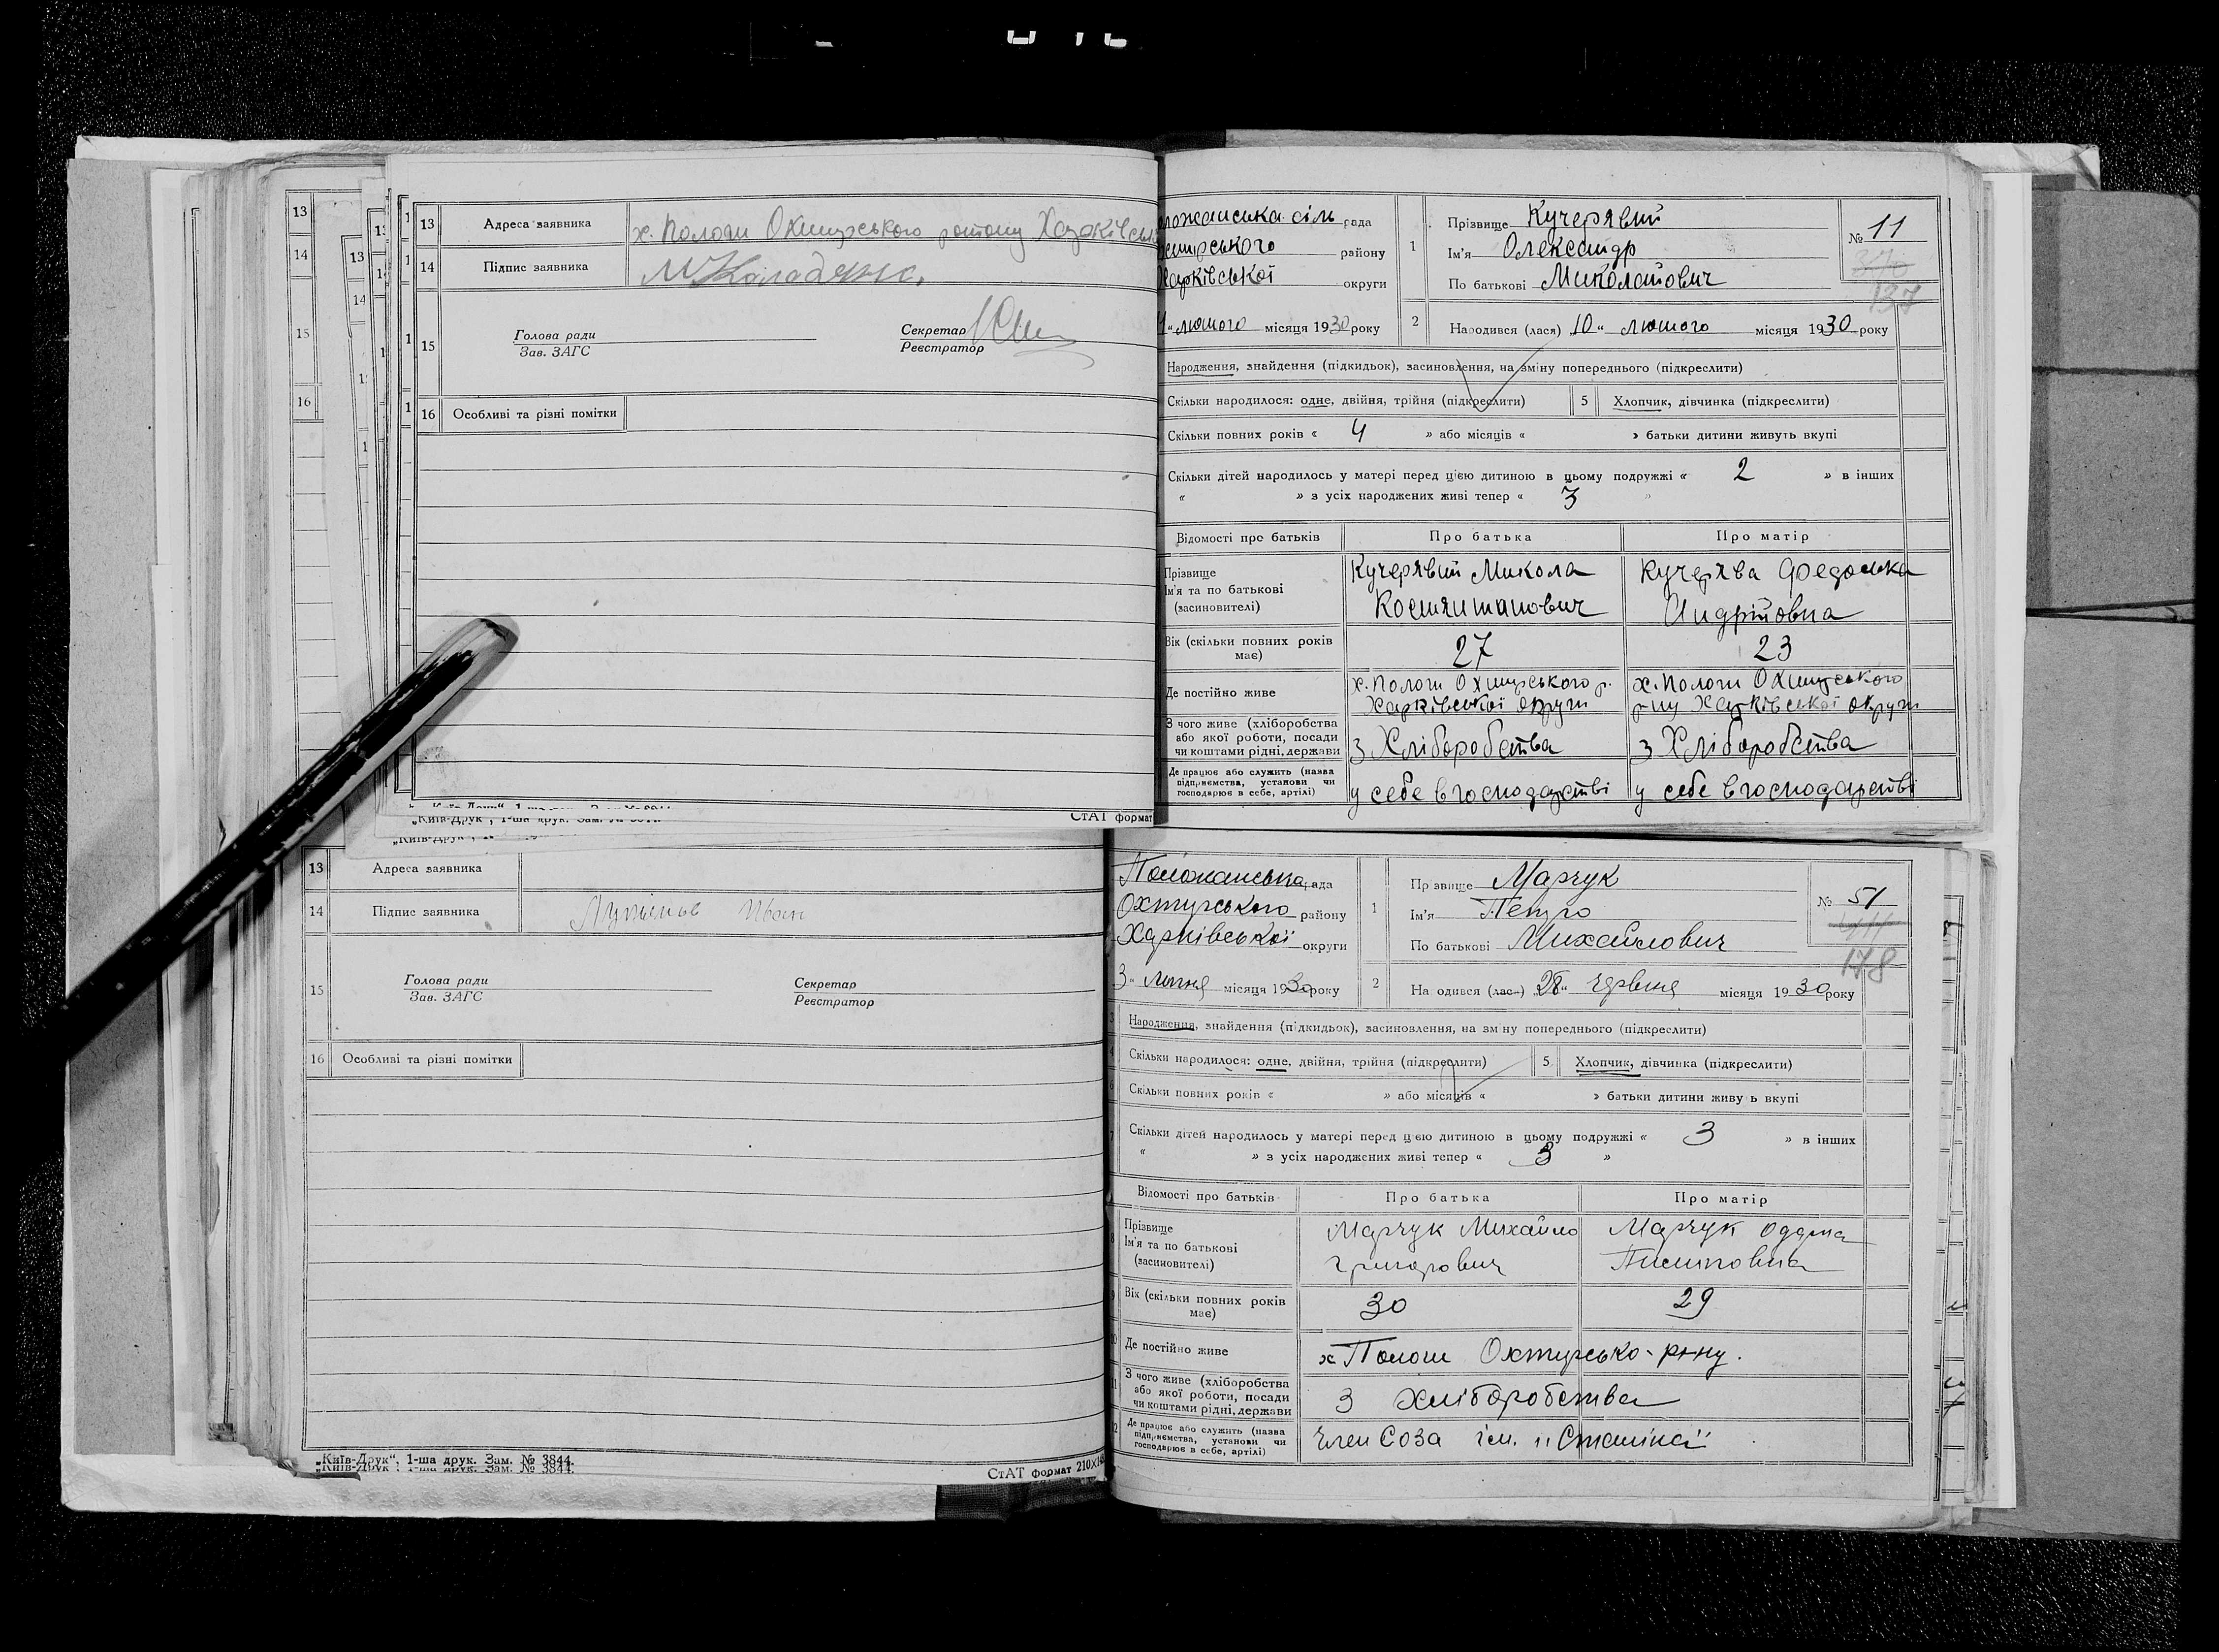 13 Адреса заявника х. Пологи Охтирського району Харківськ
14 Підпис заявника М Колодяжн.
15 Голова ради Секретар
Зав. ЗАГС Реєстратор
16 Особливі та різні помітки
СтАТ формат
ложанська сіль рада
хтирського району
Харківської округи
" лютого місяця 1930 року
1 Прізвище Кучерявий
Ім'я Олександр
По батькові Миколайович
№ 11
370
137
2 Народився (лася) "10" лютого місяця 1930 року
Народження, знайдення (підкидьок), засиновлення, на зміну попереднього (підкреслити)
Скільки народилося: одне, двійня, трійня (підкреслити) 5 Хлопчик, дівчинка (підкреслити)
Скільки повних років « 4 » або місяців « » батьки дитини живуть вкупі
Скільки дітей народилось у матері перед цією дитиною в цьому подружжі « 2 » в інших
« » з усіх народжених живі тепер « 3 »
Відомості про батьків Про батька Про матір
Прізвище Ім'я та по батькові (засиновителі) Кучерявий Микола Костянтинович Кучерява Федоська Андріївна
Вік (скільки повних років має) 27 23
Де постійно живе х. Пологи Охтирського р. Харківської округи х. Пологи Охтирського р-ну Харківської округи
З чого живе (хліборобства або якої роботи, посади чи коштами рідні, держави З Хліборобства З Хліборобства
Де працює або служить (назва підприємства, установи чи господарює в себе, артілі) у себе в господарстві у себе в господарстві
13 Адреса заявника
14 Підпис заявника Іван
15 Голова ради Секретар
Зав. ЗАГС Реєстратор
16 Особливі та різні помітки
„Київ-Друк“, 1-ша друк. Зам. № 3844.
СтАТ формат 210х1
Положанська рада
Охтирського району
Харківської округи
3 " липня місяця 1930 року
1 Прізвище Марчук
Ім'я Петро
По батькові Михайлович
№ 51
178
2 Народився (лася) "28" червня місяця 1930 року
Народження, знайдення (підкидьок), засиновлення, на зміну попереднього (підкреслити)
4 Скільки народилося: одне, двійня, трійня (підкреслити) 5 Хлопчик, дівчинка (підкреслити)
6 Скільки повних років « » або місяців « » батьки дитини живуть вкупі
7 Скільки дітей народилось у матері перед цією дитиною в цьому подружжі « 3 » в інших
« » з усіх народжених живі тепер « 3 »
Відомості про батьків Про батька Про матір
Прізвище Ім'я та по батькові (засиновителі) Марчук Михайло Григорович Марчук
Вік (скільки повних років має) 30 29
Де постійно живе х Пологи Охтирсько-р-ну.
З чого живе (хліборобства або якої роботи, посади чи коштами рідні, держави З хліборобства
Де працює або служить (назва підприємства, установи чи господарює в себе, артілі) Член Соза ім. "Сталіна"